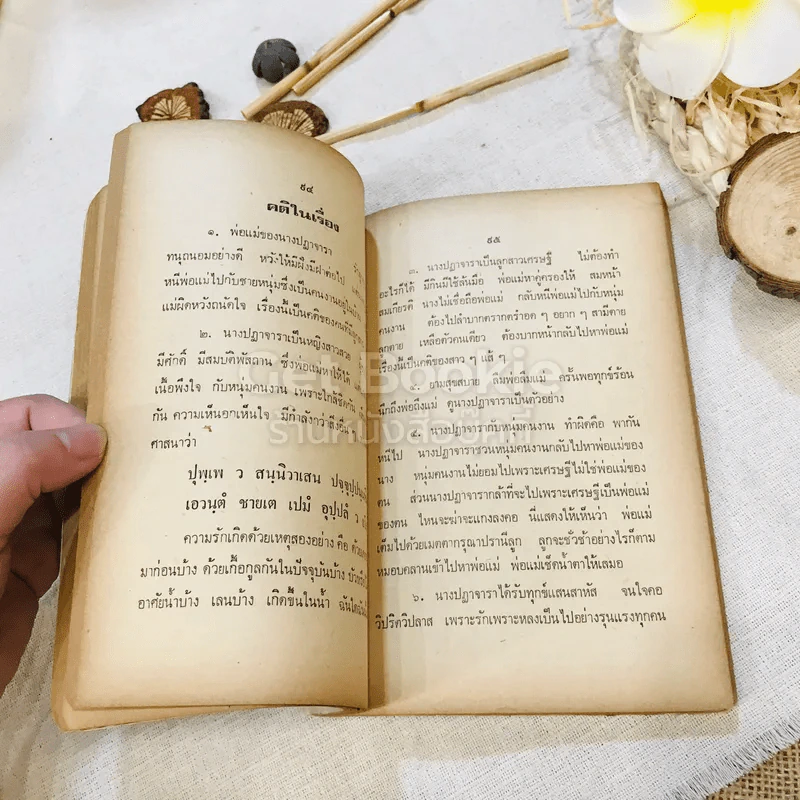 ๕๔
คติในเรื่อง
๑. พ่อแม่ของนางปฏาจารา
ทนุถนอมอย่างดี หวังให้มีผึ่งมีฝาต่อไป
หนีพ่อแม่ไปกับชายหนุ่มซึ่งเป็นคนงานอยู่ใน
แม่ผิดหวังถนัดใจ เรื่องนี้เป็นคติของคนที่มี
๒. นางปฏาจาราเป็นหญิงสาวสวย
มีศักดิ์ มีสมบัติพัสถาน ซึ่งพ่อแม่หาให้ได้
เนื้อพึงใจ กับหนุ่มคนงาน เพราะใกล้ชิดกัน
กัน ความเห็นอกเห็นใจ มีกำลังกว่าสิ่งอื่น
ศาสนาว่า
ปุพฺเพ ว สนฺนิวาเสน
เอวนฺตํ ชายเต เปมํ อุปฺปลํ ว
ความรักเกิดด้วยเหตุสองอย่าง คือ ด้วย
มาก่อนบ้าง ด้วยเกื้อกูลกันในปัจจุบันบ้าง
อาศัยน้ำบ้าง เลนบ้าง เกิดขึ้นในน้ำ ฉันใด
๙๕
๓. นางปฏาจาราเป็นลูกสาวเศรษฐี ไม่ต้องทำ
อะไรก็ได้ มีกินมีใช้ล้นมือ พ่อแม่หาคู่ครองให้ สมหน้า
สมเกียรติ นางไม่เชื่อถือพ่อแม่ กลับหนีพ่อแม่ไปกับหนุ่ม
คนงาน ต้องไปลำบากตรากตร่ำอด ๆ อยาก ๆ สามีตาย
ลูกตาย เหลือตัวคนเดียว ต้องบากหน้ากลับไปหาพ่อแม่
เรื่องนี้เป็นคติของสาว ๆ แส้ ๆ
๔. ยามสุขสบาย ลืมพ่อลืมแม่ ครั้นพอทุกข์ร้อน
นึกถึงพ่อถึงแม่ ดูนางปฏาจาราเป็นตัวอย่าง
๕. นางปฏาจารากับหนุ่มคนงาน ทำผิดคือ พากัน
หนีไป นางปฏาจาราชวนหนุ่มคนงานกลับไปหาพ่อแม่ของ
นาง หนุ่มคนงานไม่ยอมไปเพราะเศรษฐีไม่ใช่พ่อแม่ของ
ตน ส่วนนางปฏาจารากล้าที่จะไปเพราะเศรษฐีเป็นพ่อแม่
ของตน ไหนจะฆ่าจะแกงลงคอ นี่แสดงให้เห็นว่า พ่อแม่
เต็มไปด้วยเมตตากรุณาปรานีลูก ลูกจะชั่วช้าอย่างไรก็ตาม
หมอบคลานเข้าไปหาพ่อแม่ พ่อแม่เช็ดน้ำตาให้เสมอ
๖. นางปฏาจาราได้รับทุกข์แสนสาหัส จนใจคอ
วิปริตวิปลาส เพราะรักเพราะหลงเป็นไปอย่างรุนแรงทุกคน
Get Bookie
ร้านหนังสือเก็ทบุ๊คกี้